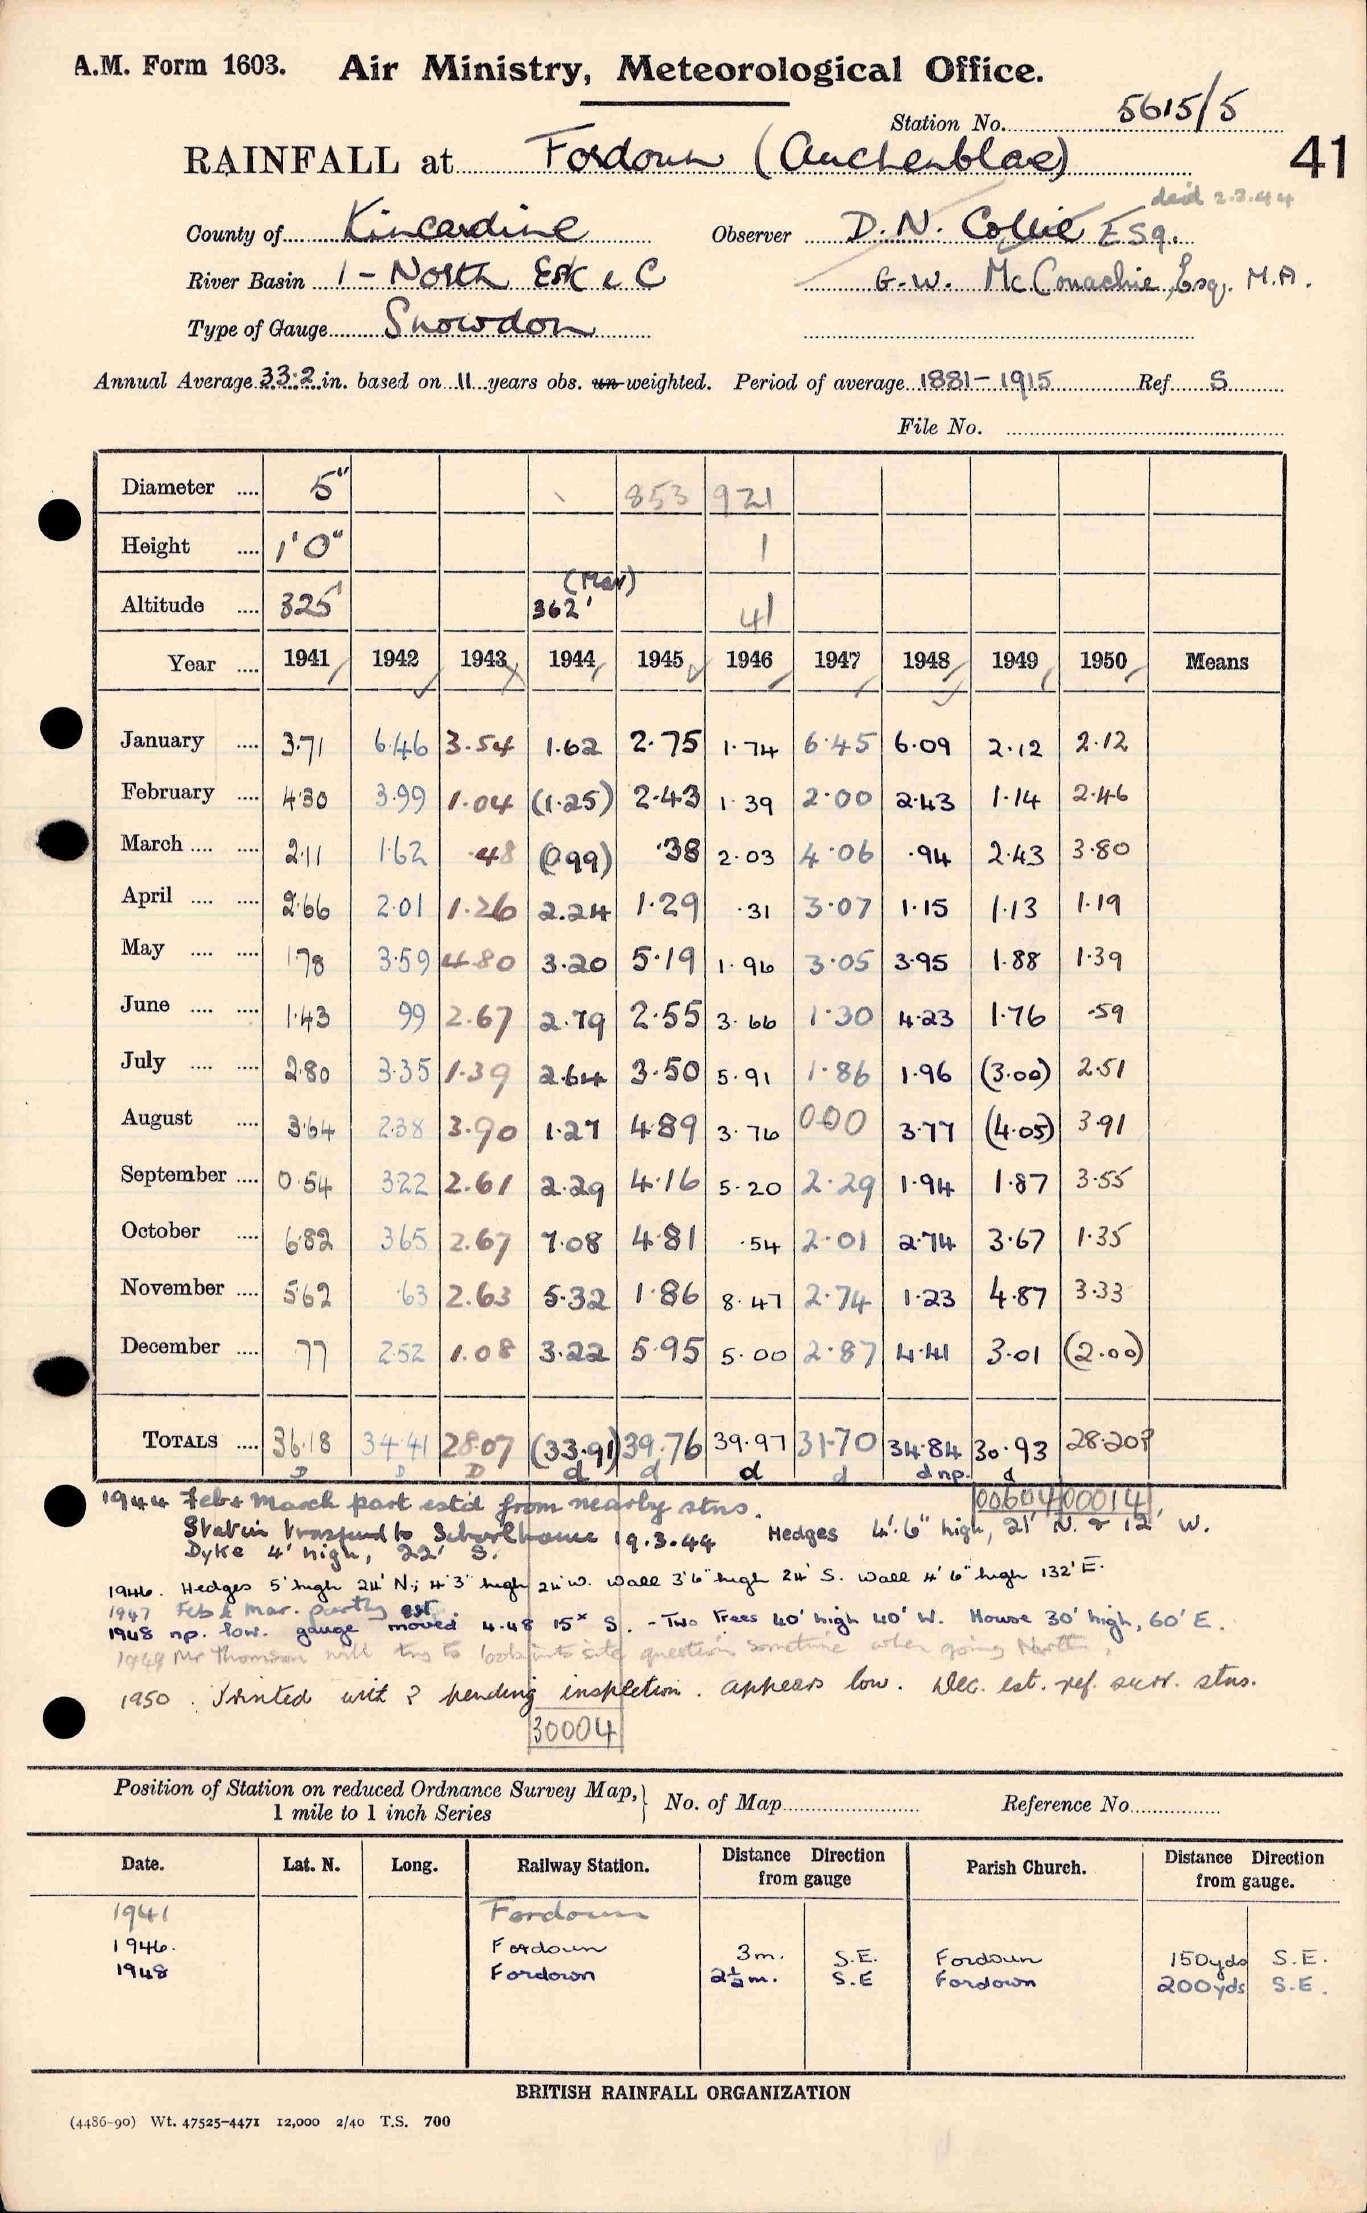 A.M. Form 1603. Air Ministry, Meteorological Office.
Station No. 5615/5
RAINFALL at Fordoun (Auchenblae) 41
dec'd 2.3.44
County of Kincardine Observer D.N. Collie Esq.
River Basin 1 - North Esk & C G.W. McConachie, Esq. M.A.
Type of Gauge Snowdon
Annual Average 33.2 in. based on 11 years obs. un-weighted. Period of average 1881-1915 Ref. S
File No.
Diameter .... 5" 853 921
Height .... 1' 0" 1
(Mar)
Altitude .... 325' 362' 41
Year .... 1941 1942 1943 1944 1945 1946 1947 1948 1949 1950 Means
January .... 3.71 6.46 3.54 1.62 2.75 1.74 6.45 6.09 2.12 2.12
February .... 4.30 3.99 1.04 (1.25) 2.43 1.39 2.00 2.43 1.14 2.46
March .... .... 2.11 1.62 .48 (0.99) .38 2.03 4.06 .94 2.43 3.80
April .... .... 2.66 2.01 1.26 2.24 1.29 .31 3.07 1.15 1.13 1.19
May .... .... 1.78 3.59 4.80 3.20 5.19 1.96 3.05 3.95 1.88 1.39
June .... .... 1.43 99 2.67 2.79 2.55 3.66 1.30 4.23 1.76 .59
July .... .... 2.80 3.35 1.39 2.64 3.50 5.91 1.86 1.96 (3.00) 2.51
August .... 3.64 2.38 3.90 1.27 4.89 3.76 0.00 3.77 (4.05) 3.91
September .... 0.54 3.22 2.61 2.29 4.16 5.20 2.29 1.94 1.87 3.55
October .... 6.82 3.65 2.67 7.08 4.81 .54 2.01 2.74 3.67 1.35
November .... 5.62 .63 2.63 5.32 1.86 8.47 2.74 1.23 4.87 3.33
December .... .77 2.52 1.08 3.22 5.95 5.00 2.87 4.41 3.01 (2.00)
TOTALS .... 36.18 34.41 28.07 (33.91) 39.76 39.97 31.70 34.84 30.93 28.20?
D D D d d d d d np. d
1944 Feb & March part est'd from nearby stns. 00604 00014
Station transferred to Schoolhouse 19.3.44 Hedges 4'.6" high, 21' N. & 12' W.
Dyke 4' high, 22' S.
1946. Hedges 5' high 24' N; 4'3" high 24' W. Wall 3'6" high 24' S. Wall 4'6" high 132' E.
1947 Feb & Mar. partly est.
1948 np. low. gauge moved 4.48 15x S. - Two Trees 40' high 40' W. House 30' high, 60' E.
1949 Mr Thomson will try to look into site question sometime when going North.
1950. Printed with ? pending inspection. appears low. Dec. est. ref. surr. stns.
30004
Position of Station on reduced Ordnance Survey Map, 1 mile to 1 inch Series } No. of Map Reference No.
Date. Lat. N. Long. Railway Station. Distance from gauge Direction Parish Church. Distance from gauge. Direction
1941 Fordoun
1946. Fordoun 3m. S.E. Fordoun 150yds S.E.
1948 Fordown 2½m. S.E Fordown 200yds S.E.
BRITISH RAINFALL ORGANIZATION
(4486-90) Wt. 47525-4471 12,000 2/40 T.S. 700